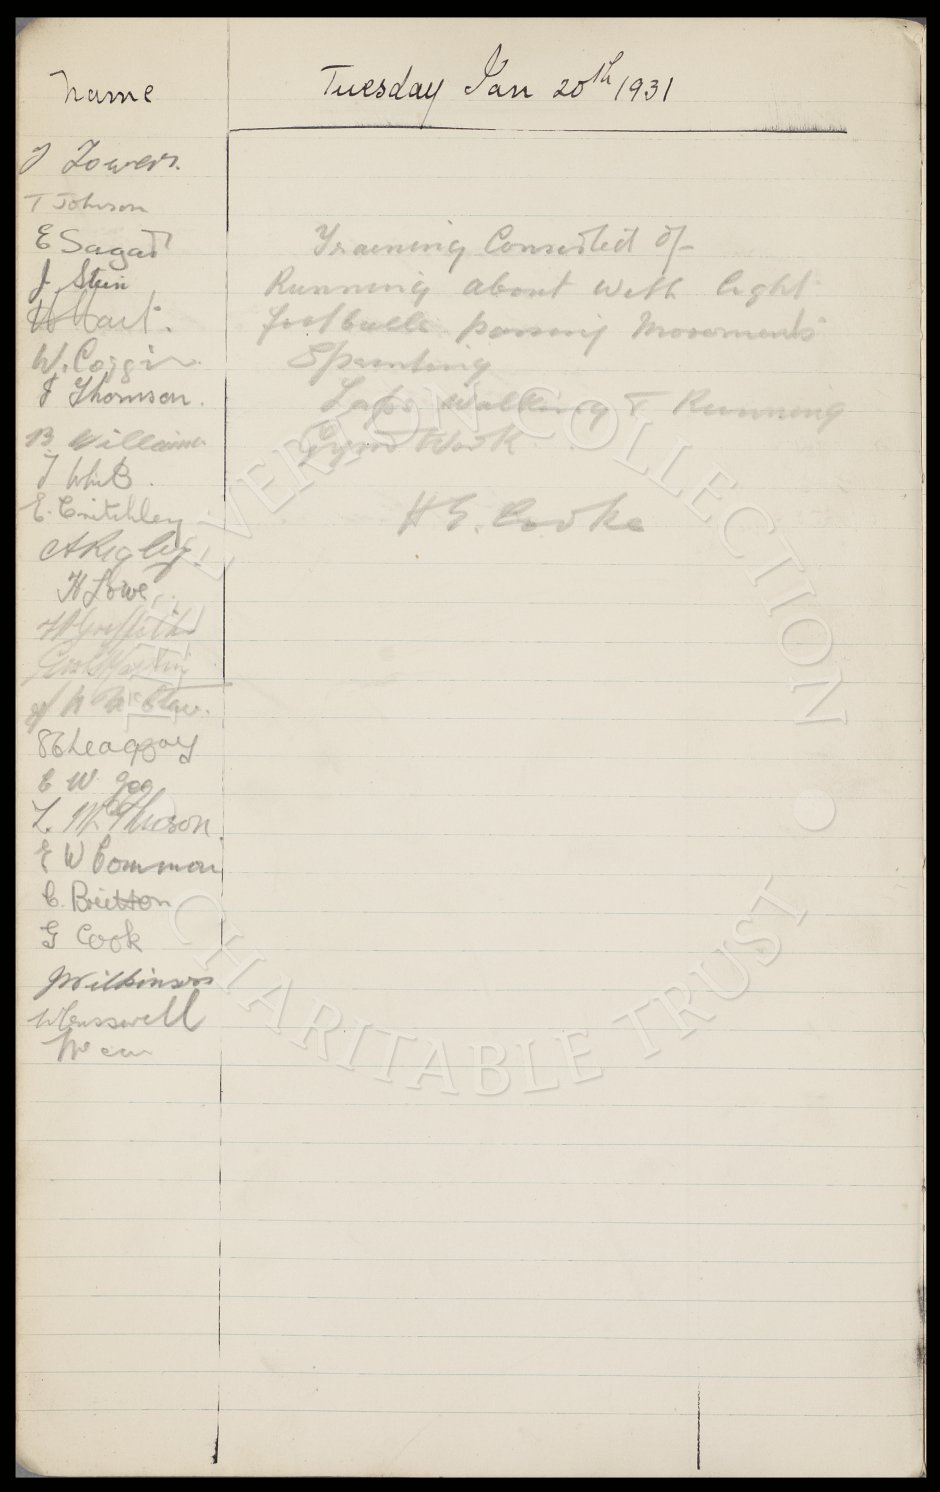 Name
Tuesday Jan 20th 1931
J Towers.
T Johnson
E Sagar
J Stein
W Hart.
W. Coggin
J Thomson.
B. Williams
T White.
E. Critchley
A Rigby.
H Lowe
Training Consisted of
Running about with light
footballs. passing Movements
Sprinting
Laps Walking & Running
Gym Work
H E. Cooke
P Griffiths
Geo Martin
J N McClure.
S C Leaqqoy
E W Gee
L. McPherson
E W Common
C. Britton
G Cook
J Wilkinson
W Cresswell
THE EVERTON COLLECTION
CHARITABLE TRUST